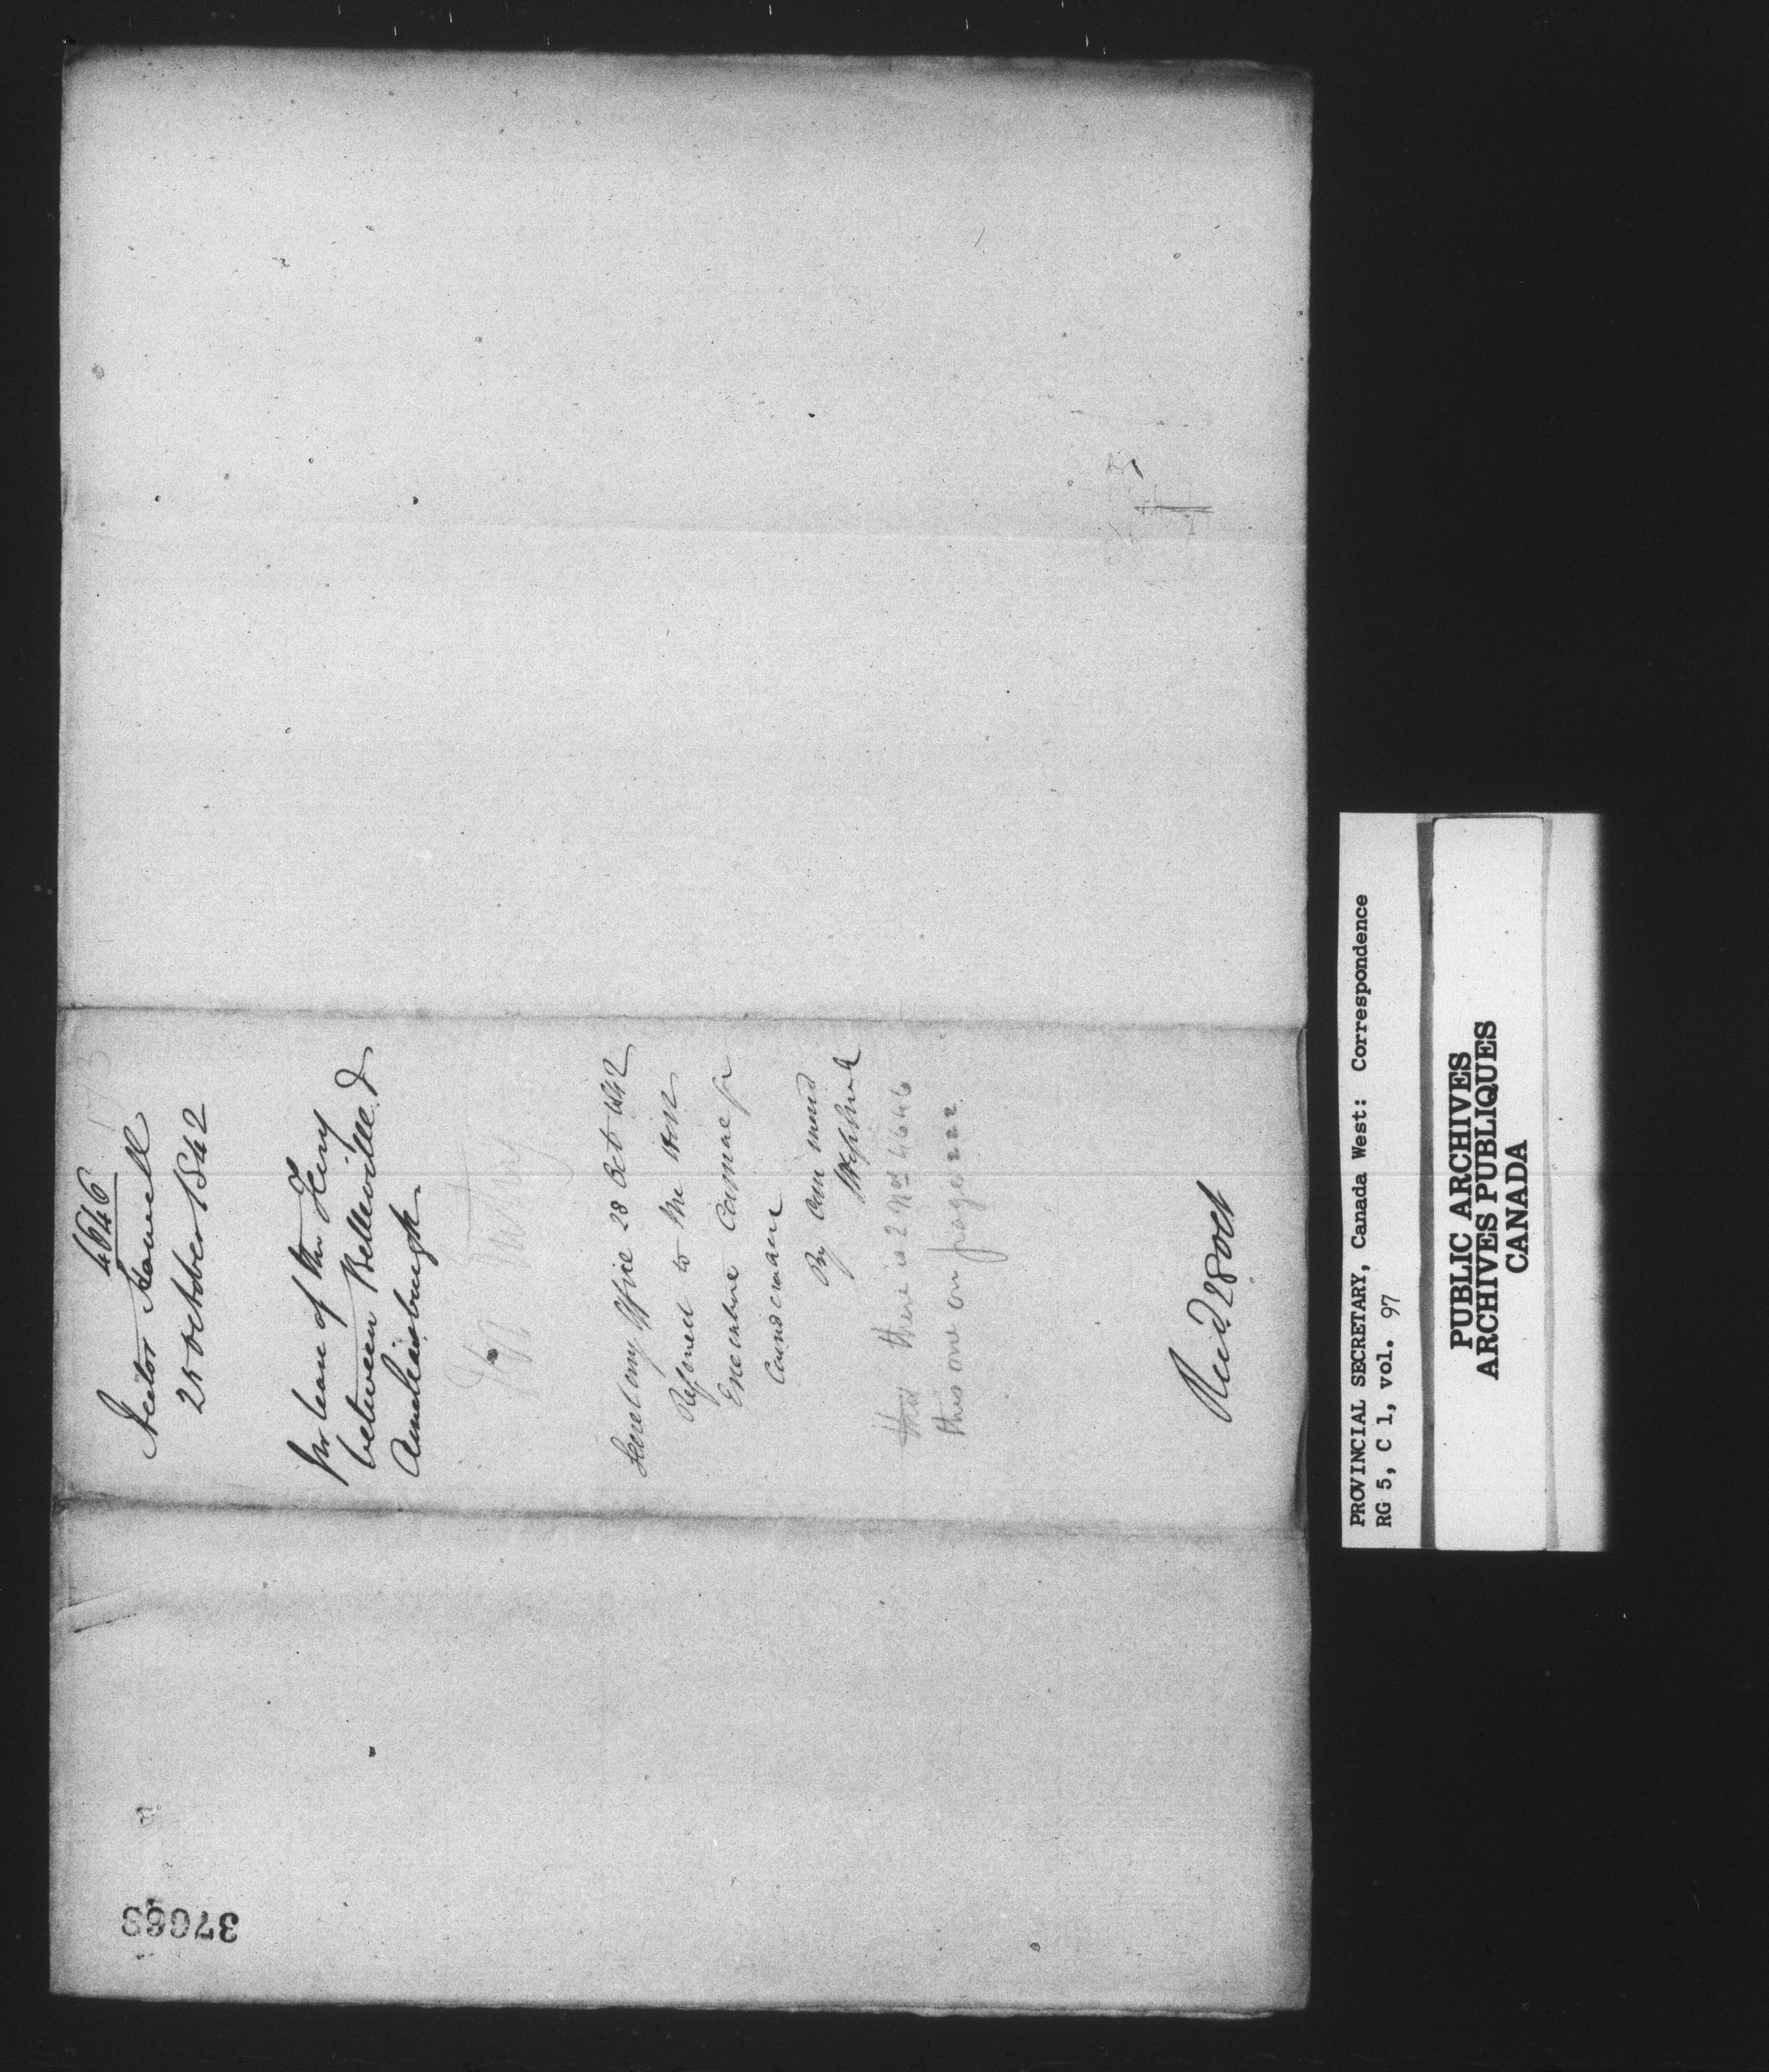 4646
173
Hector
25 October 1842
for lease of the Ferry
between Belleville &
Ameliasburgh
Secretarys Office 28 Oct 1842
Referred to the Hon
Executive Council for
Consideration
By Command
that there is 2 Nos 4646
this one on page 222
Recd. 28 Oct
37663
PROVINCIAL SECRETARY, Canada West: Correspondence
RG 5, C 1, vol. 97
PUBLIC ARCHIVES
ARCHIVES PUBLIQUES
CANADA